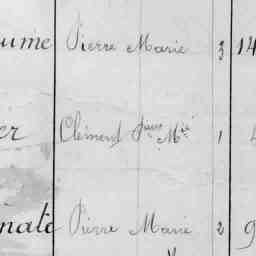 ume Pierre Marie 3 14
er Clément Mie 1
nato Pierre Marie 2 9